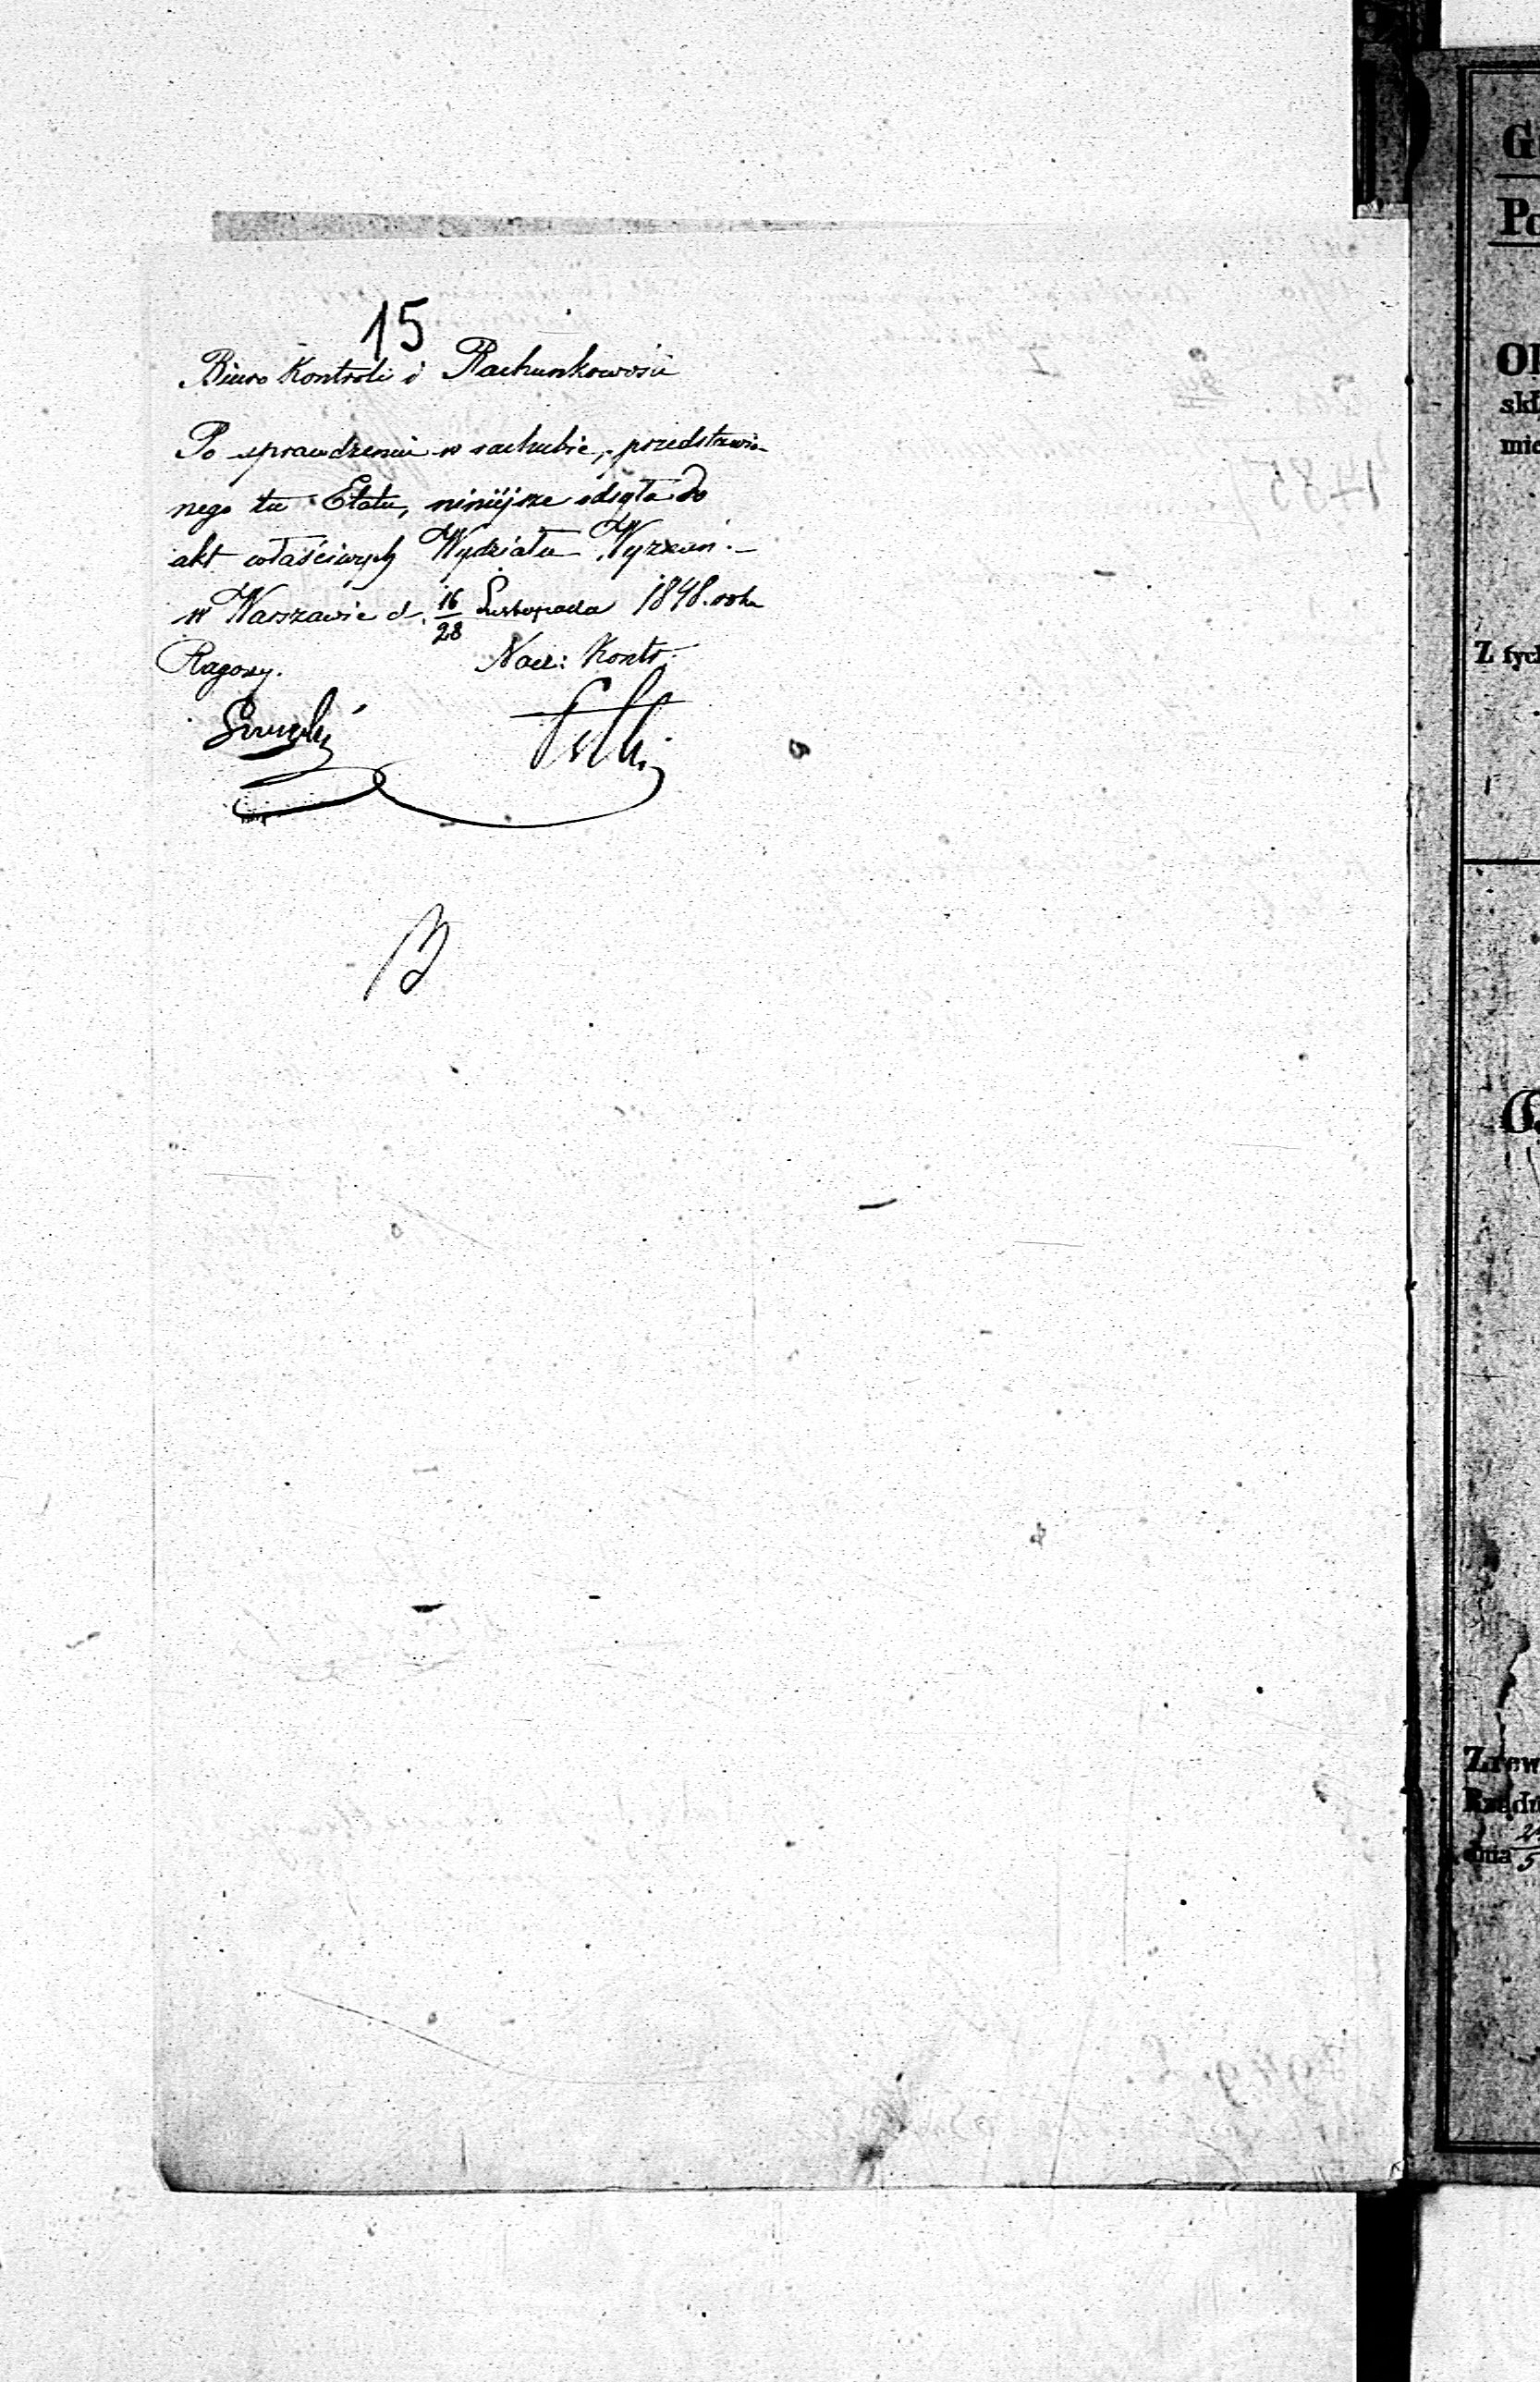 15
Biuro Kontroli i Rachunkowości
Po sprawdzeniu w rachubie, przedstawio-
nego tu Etatu, niniejsze odsyła do
akt właściwych Wydziału Wyznań.
w Warszawie d. 16/28 Listopada 1848. roku
Nacz: Kontr.
G
Po
skł
mie
Z tych
Zrew
Rządu
dnia